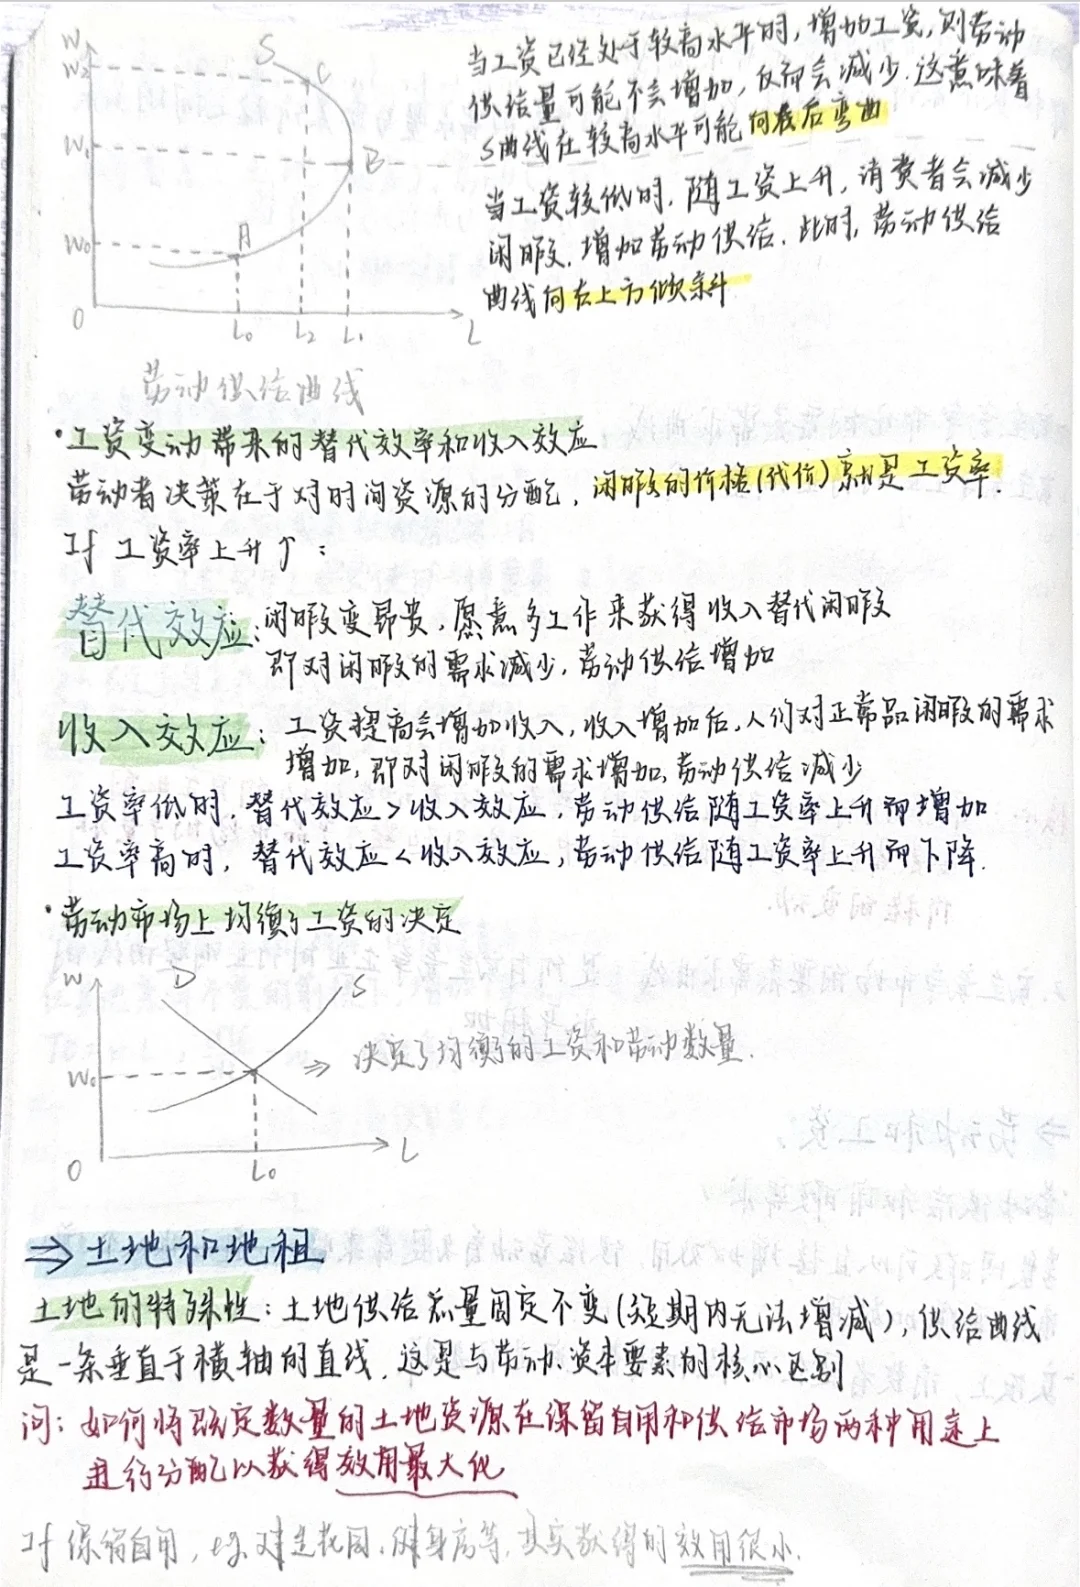 W
W₂
W₁
W₀
S
C
B
A
O
L₀ L₂ L₁ L
劳动供给曲线
当工资已经处于较高水平时,增加工资,则劳动
供给量可能不会增加,反而会减少.这意味着
S曲线在较高水平可能向后弯曲
当工资较低时,随工资上升,消费者会减少
闲暇,增加劳动供给.此时,劳动供给
曲线向右上方倾斜
·工资变动带来的替代效率和收入效应
劳动者决策在于对时间资源的分配,闲暇的价格(代价)就是工资率.
If 工资率上升↑:
替代效应:闲暇变昂贵,愿意多工作来获得收入替代闲暇
即对闲暇的需求减少,劳动供给增加
收入效应:工资提高会增加收入,收入增加后,人们对正常品闲暇的需求
增加,即对闲暇的需求增加,劳动供给减少
工资率低时,替代效应>收入效应,劳动供给随工资率上升而增加
工资率高时,替代效应<收入效应,劳动供给随工资率上升而下降.
·劳动市场上均衡了工资的决定
W D S
W₀ ⇒ 决定了均衡的工资和劳动数量.
O L₀ L
⇒土地和地租
土地的特殊性:土地供给总量固定不变(短期内无法增减),供给曲线
是一条垂直于横轴的直线.这是与劳动.资本要素的核心区别
问:如何将既定数量的土地资源在保留自用和供给市场两种用途上
进行分配以获得效用最大化
If 保留自用,eg.建造花园.健身房等.其实获得的效用很小.